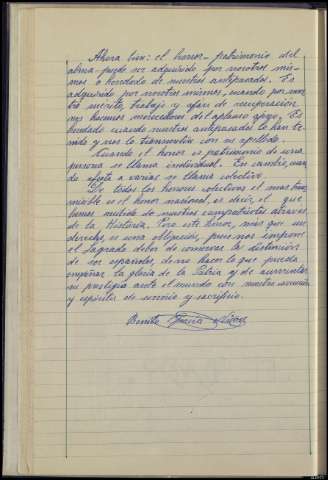 Ahora bien: el honor - patrimonio del
alma - puede ser adquirido por nosotros mis-
mos o heredado de nuestros antepasados. Es
adquirido por nosotros mismos, cuando por nues-
tro mérito, trabajo y afán de recuperación
nos hacemos merecedores del aplauso ajeno. Es
heredado cuando nuestros antepasados lo han te-
nido y nos lo transmiten con su apellido.
Cuando el honor es patrimonio de una
persona se llama individual. En cambio, cuan-
do afecta a varias se llama colectivo.
De todos los honores colectivos el mas esti-
mable es el honor nacional, es decir, el que
hemos recibido de nuestros compatriotas através
de la Historia. Pero este honor, más que un
derecho, es una obligación, pues nos impone
el Sagrado deber de conservar la distinción
de ser españoles, de no hacer lo que pueda
empañar la gloria de la Patria y de aumentar
su prestigio ante el mundo con nuestra
y espíritu de servicio y sacrificio.
Benito García